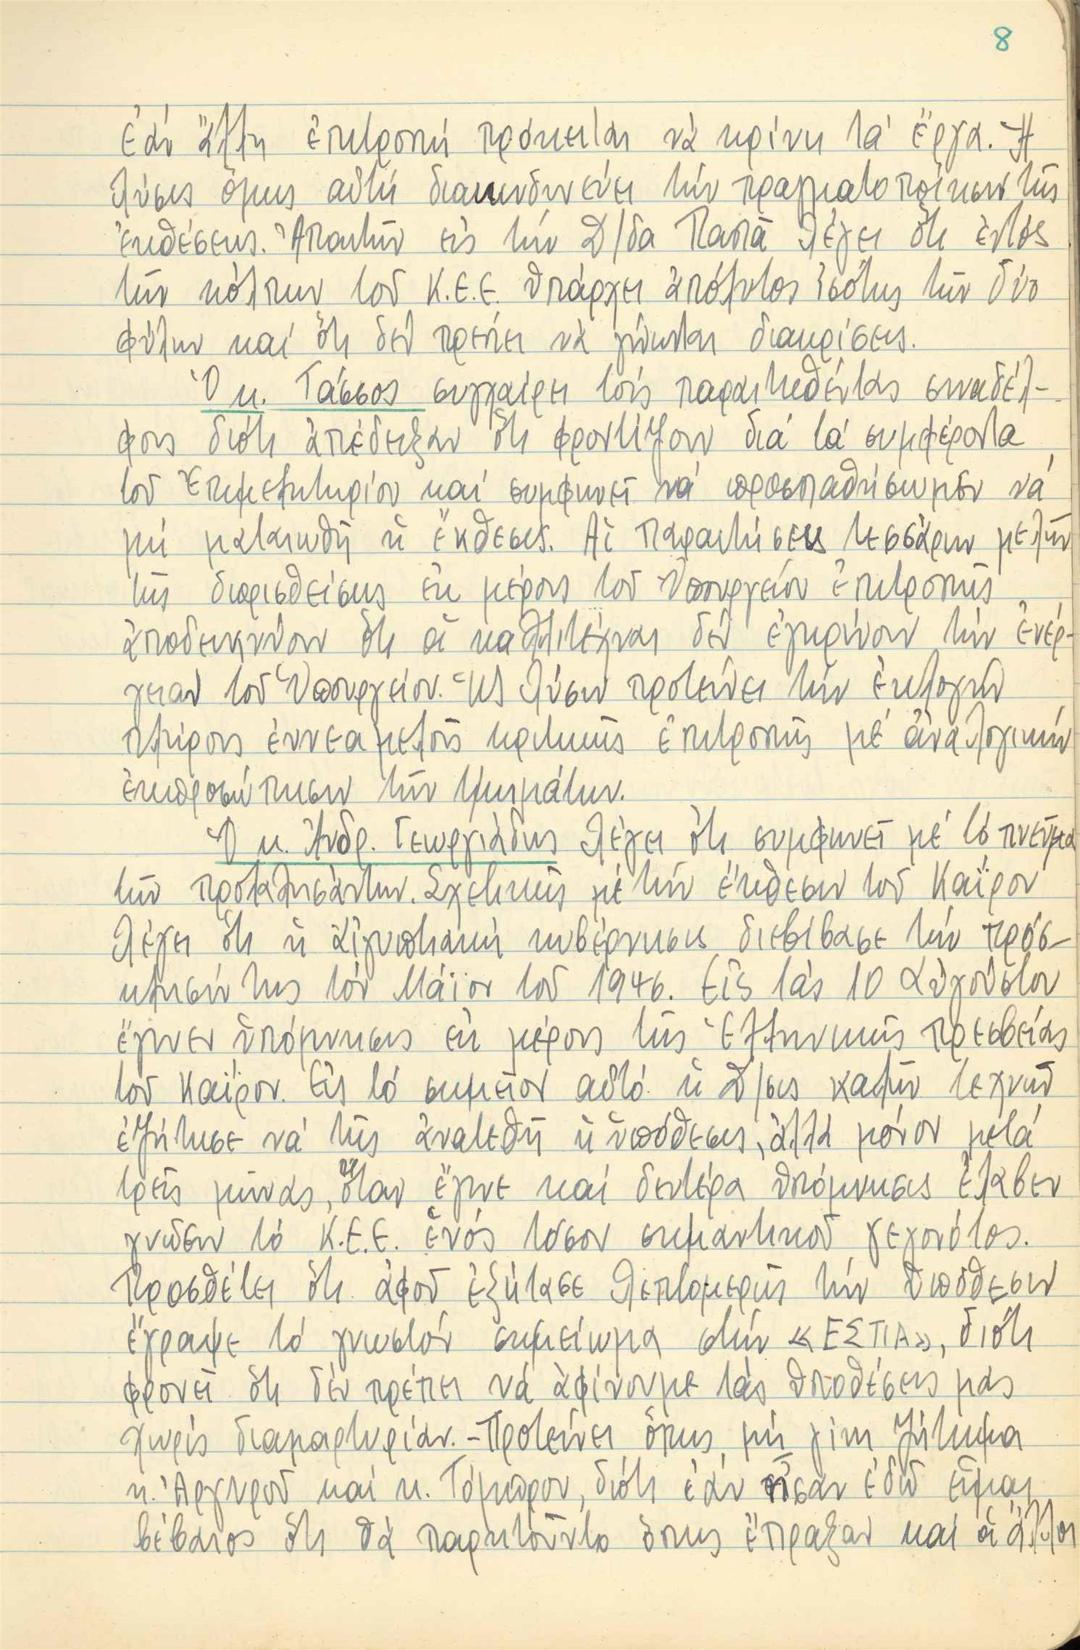 8
ἐάν ἄλλη ἐπιτροπή πρόκειται νὰ κρίνη τά ἔργα. Ἡ
λύσις ὅμως αὐτή διακινδυνεύει τήν πραγματοποίησιν τῆς
ἐκθέσεως. Ἀπαντῶν εἰς τήν Δ/δα Παπᾶ λέγει ὅτι ἐντός
τῶν κόλπων τοῦ Κ.Ε.Ε. ὑπάρχει ἀπόλυτος ἰσότης τῶν δύο
φύλων καί ὅτι δέν πρέπει νὰ γίνωνται διακρίσεις.
Ὁ κ. Τάσσος συγχαίρει τούς παραιτηθέντας συναδέλ-
φους διότι ἀπέδειξαν ὅτι φροντίζουν διά τά συμφέροντα
τοῦ Ἐπιμελητηρίου καί συμφωνεῖ νά προσπαθήσωμεν νά
μή ματαιωθῆ ἡ ἔκθεσις. Αἱ παραιτήσεις τεσσάρων μελῶν
τῆς διορισθείσης ἐκ μέρους τοῦ Ὑπουργείου ἐπιτροπῆς
ἀποδεικνύουν ὅτι οἱ καλλιτέχναι δέν ἐγκρίνουν τήν ἐνέρ-
γειαν τοῦ Ὑπουργείου. Ὡς λύσιν προτείνει τήν ἐκλογήν
πλήρους ἐννεαμελοῦς κριτικῆς ἐπιτροπῆς μέ ἀναλογικήν
ἐκπροσώπησιν τῶν τμημάτων.
Ὁ κ. Ἀνδρ. Γεωργιάδης λέγει ὅτι συμφωνεῖ μέ τό πνεῦμα
τῶν προλαλησάντων. Σχετικῶς μέ τήν ἔκθεσιν τοῦ Καΐρου
λέγει ὅτι ἡ αἰγυπτιακή κυβέρνησις διεβίβασε τήν πρόσ-
κλησίν της τόν Μάϊον τοῦ 1946. Εἰς τάς 10 Αὐγούστου
ἔγινεν ὑπόμνησις ἐκ μέρους τῆς Ἑλληνικῆς πρεσβείας
τοῦ Καΐρου. Εἰς τό σημεῖον αὐτό ἡ Δ/σις καλῶν τεχνῶν
ἐζήτησε νά τῆς ἀνατεθῆ ἡ ὑπόθεσις, ἀλλά μόνον μετά
τρεῖς μῆνας, ὅταν ἔγινε καί δευτέρα ὑπόμνησις ἔλαβεν
γνῶσιν τό Κ.Ε.Ε. ἑνός τόσον σημαντικοῦ γεγονότος.
Προσθέτει ὅτι ἀφοῦ ἐξήτασε λεπτομερῶς τήν ὑπόθεσιν
ἔγραψε τό γνωστόν σημείωμα στήν «ΕΣΤΙΑ», διότι
φρονεῖ ὅτι δέν πρέπει νά ἀφίνουμε τάς ὑποθέσεις μας
χωρίς διαμαρτυρίαν. - Προτείνει ὅπως μή γίνη ζήτημα
κ. Ἀργυροῦ καί κ. Τόμπρου, διότι ἐάν ἦσαν ἐδῶ εἶμαι
βέβαιος ὅτι θά παρητοῦντο ὅπως ἔπραξαν καί οἱ ἄλλοι